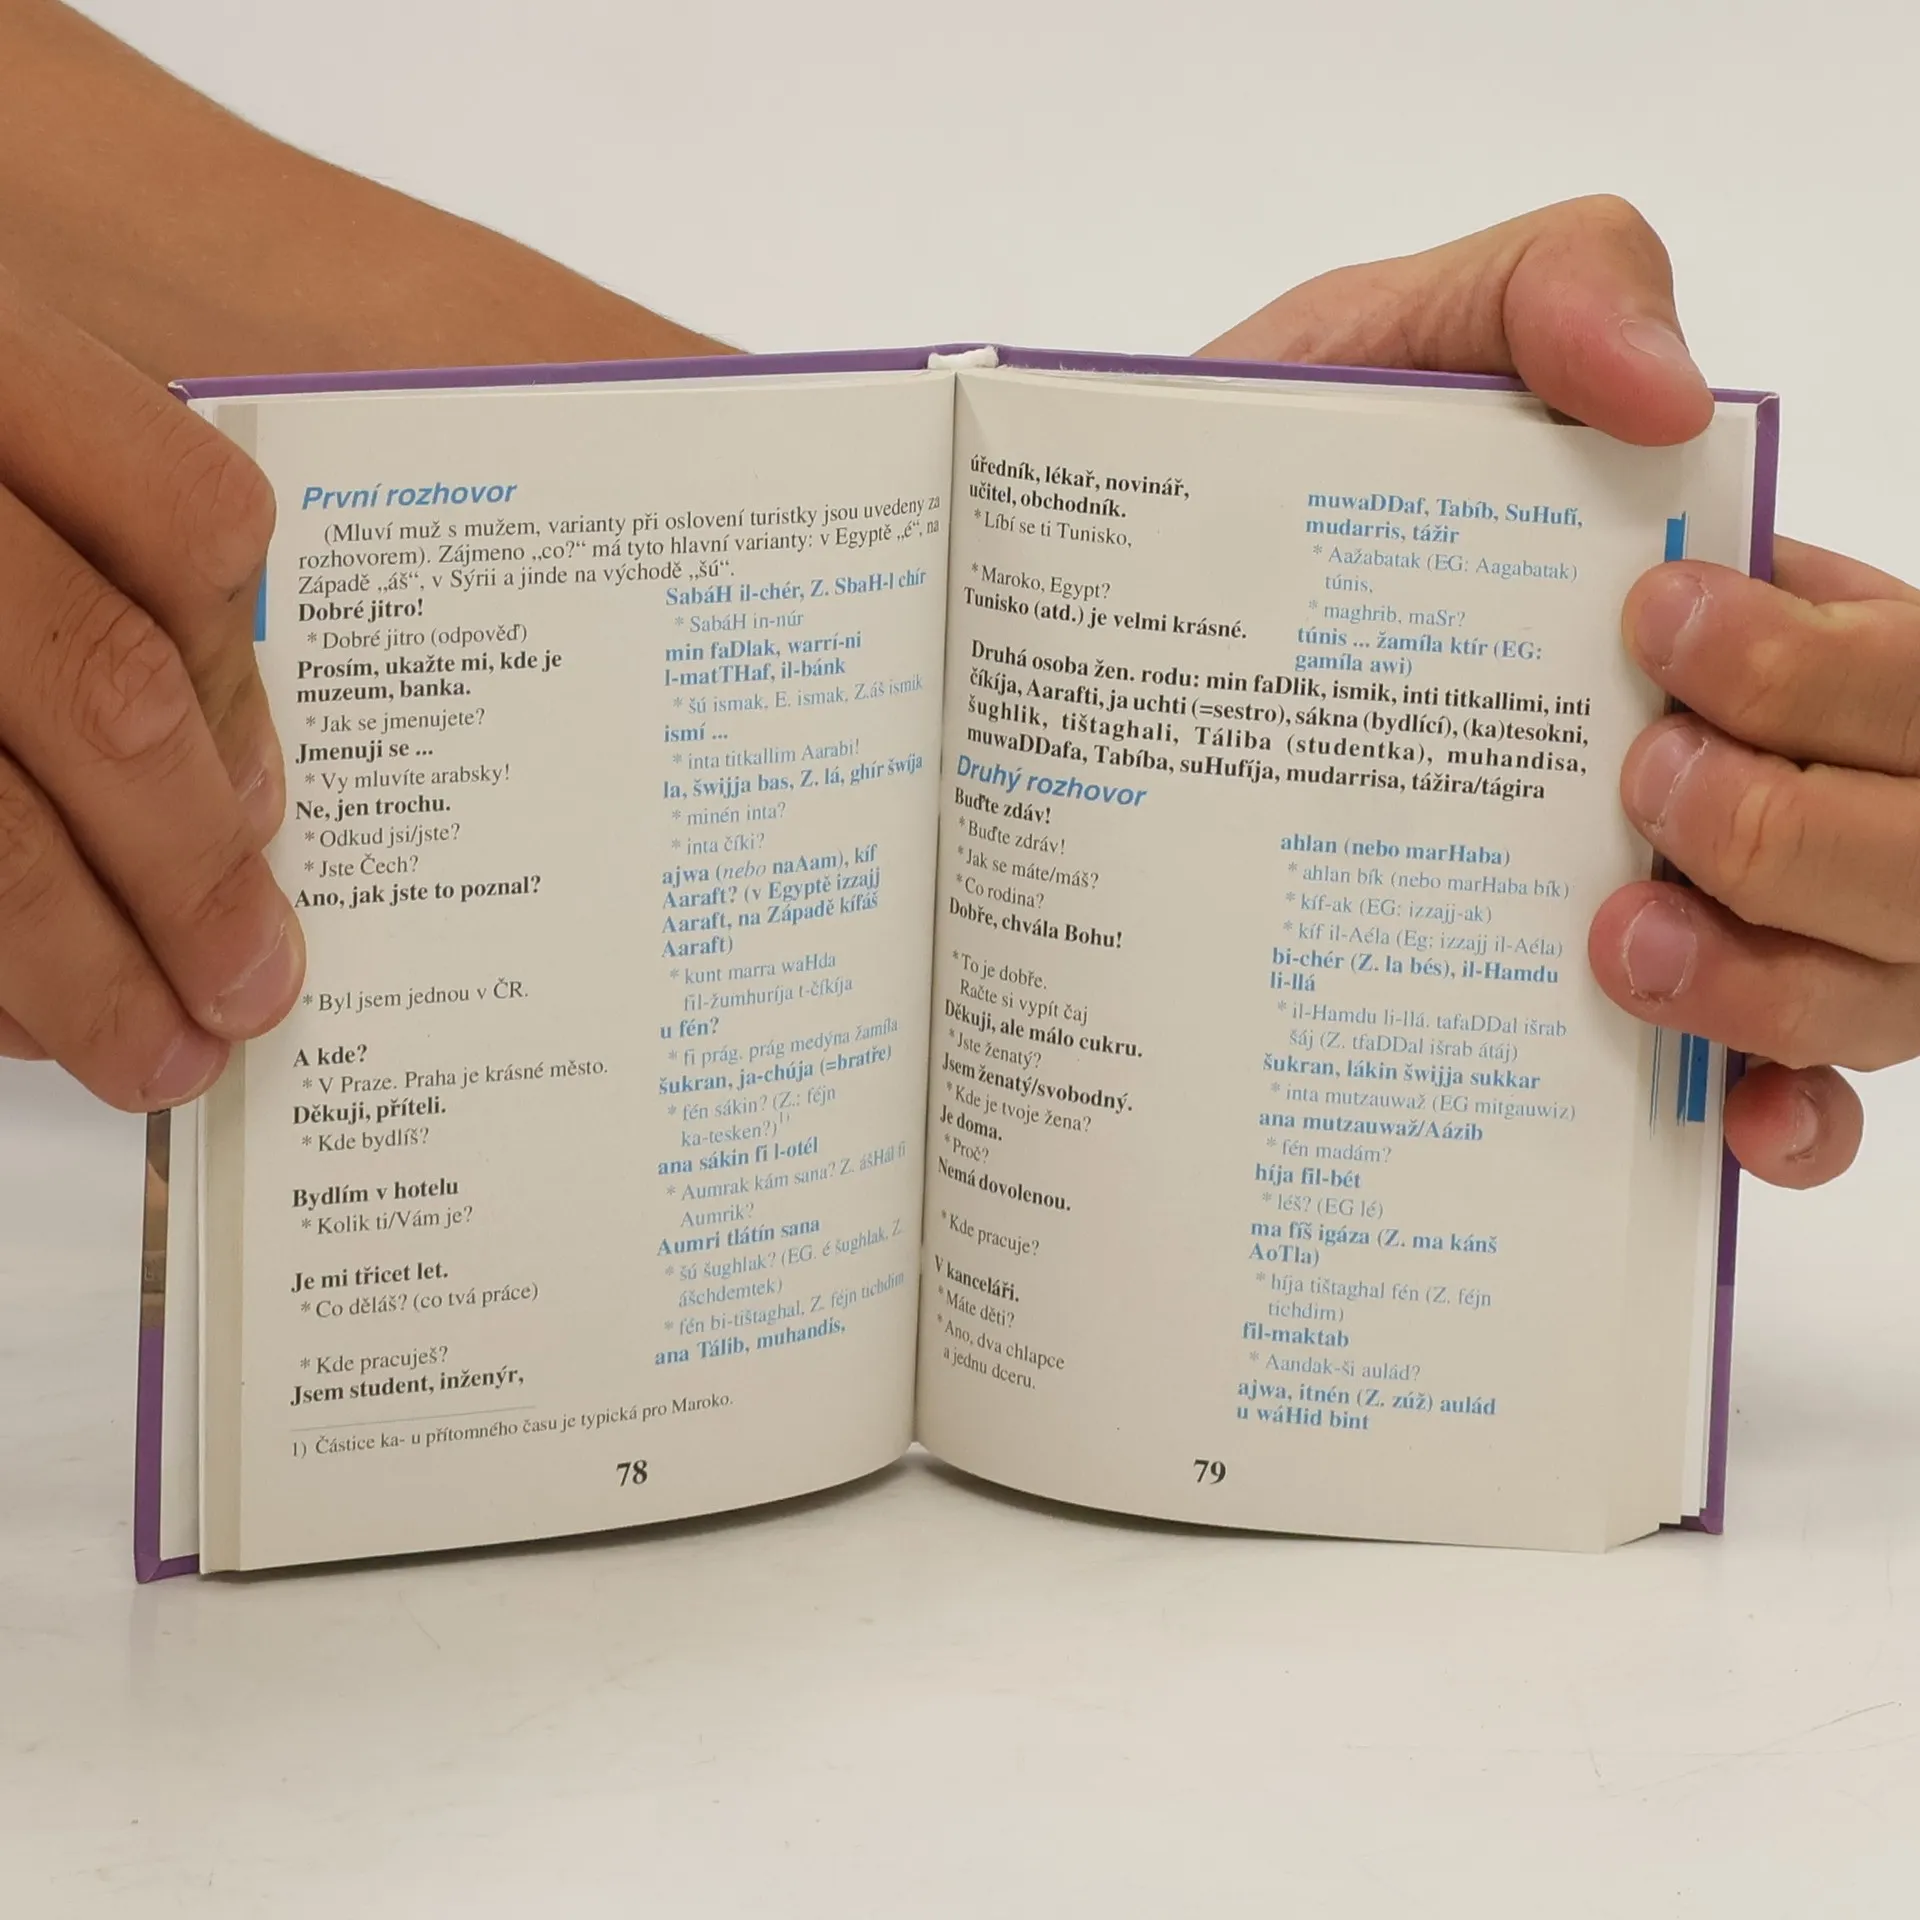 První rozhovor
(Mluví muž s mužem, varianty při oslovení turistky jsou uvedeny za
rozhovorem). Zájmeno „co?“ má tyto hlavní varianty: v Egyptě „é“, na
Západě „áš“, v Sýrii a jinde na východě „šú“.
Dobré jitro!
* Dobré jitro (odpověď)
Prosím, ukažte mi, kde je
muzeum, banka.
* Jak se jmenujete?
Jmenuji se ...
* Vy mluvíte arabsky!
Ne, jen trochu.
* Odkud jsi/jste?
* Jste Čech?
Ano, jak jste to poznal?
* Byl jsem jednou v ČR.
A kde?
* V Praze. Praha je krásné město.
Děkuji, příteli.
* Kde bydlíš?
Bydlím v hotelu
* Kolik ti/Vám je?
Je mi třicet let.
* Co děláš? (co tvá práce)
* Kde pracuješ?
Jsem student, inženýr,
SabáH il-chér, Z. SbaH-l chír
* SabáH in-núr
min faDlak, warrí-ni
l-matTHaf, il-bánk
* šú ismak, E. ismak, Z.áš ismik
ismí ...
* inta titkallim Aarabi!
la, šwijja bas, Z. lá, ghír šwíja
* minén inta?
* inta číki?
ajwa (nebo naAam), kíf
Aaraft? (v Egyptě izzajj
Aaraft, na Západě kífáš
Aaraft)
* kunt marra waHda
fil-žumhuríja t-číkíja
u fén?
* fi prág. prág medýna žamíla
šukran, ja-chúja (=bratře)
* fén sákin? (Z.: féjn
ka-tesken?)1)
ana sákin fi l-otél
* Aumrak kám sana? Z. ášHál fi
Aumrik?
Aumri tlátín sana
* šú šughlak? (EG. é šughlak, Z.
ášchdemtek)
* fén bi-tištaghal, Z. féjn tichdim
ana Tálib, muhandis,
1) Částice ka- u přítomného času je typická pro Maroko.
78
úředník, lékař, novinář,
učitel, obchodník.
* Líbí se ti Tunisko,
* Maroko, Egypt?
Tunisko (atd.) je velmi krásné.
muwaDDaf, Tabíb, SuHufí,
mudarris, tážir
* Aažabatak (EG: Aagabatak)
túnis,
* maghrib, maSr?
túnis ... žamíla ktír (EG:
gamíla awi)
Druhá osoba žen. rodu: min faDlik, ismik, inti titkallimi, inti
číkíja, Aarafti, ja uchti (=sestro), sákna (bydlící), (ka)tesokni,
šughlik, tištaghali, Táliba (studentka), muhandisa,
muwaDDafa, Tabíba, suHufíja, mudarrisa, tážira/tágira
Druhý rozhovor
Buďte zdáv!
* Buďte zdráv!
* Jak se máte/máš?
* Co rodina?
Dobře, chvála Bohu!
* To je dobře.
Račte si vypít čaj
Děkuji, ale málo cukru.
* Jste ženatý?
Jsem ženatý/svobodný.
* Kde je tvoje žena?
Je doma.
* Proč?
Nemá dovolenou.
* Kde pracuje?
V kanceláři.
* Máte děti?
* Ano, dva chlapce
a jednu dceru.
ahlan (nebo marHaba)
* ahlan bík (nebo marHaba bík)
* kíf-ak (EG: izzajj-ak)
* kíf il-Aéla (Eg: izzajj il-Aéla)
bi-chér (Z. la bés), il-Hamdu
li-llá
* il-Hamdu li-llá. tafaDDal išrab
šáj (Z. tfaDDal išrab átáj)
šukran, lákin šwijja sukkar
* inta mutzauwaž (EG mitgauwiz)
ana mutzauwaž/Aázib
* fén madám?
híja fil-bét
* léš? (EG lé)
ma fíš igáza (Z. ma kánš
AoTla)
* híja tištaghal fén (Z. féjn
tichdim)
fil-maktab
* Aandak-ši aulád?
ajwa, itnén (Z. zúž) aulád
u wáHid bint
79